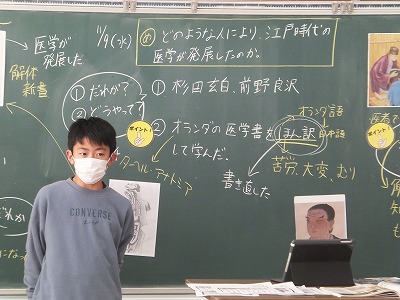 11/9(火)
め どのような人により、江戸時代の
医学が発展したのか。
医学が
発展した
解体
新書
①だれが?
②どうやって?
①杉田玄白、前野良沢
ポイント!
②オランダの医学書をほん訳
して学んだ。
オランダ語
日本語
ターヘル・アナトミア
書き直した
苦労、大変、むり
ポイント!
医者で
だれか
CONVERSE